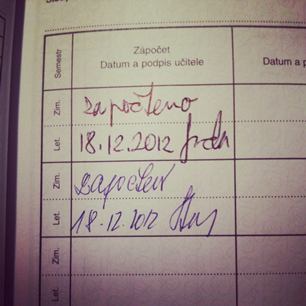 Semestr
Zápočet
Datum a podpis učitele
Datum a p
Zim.
započteno
Let.
18.12.2012
Zim.
započteno
Let.
18.12.2012
Zim.
Let.